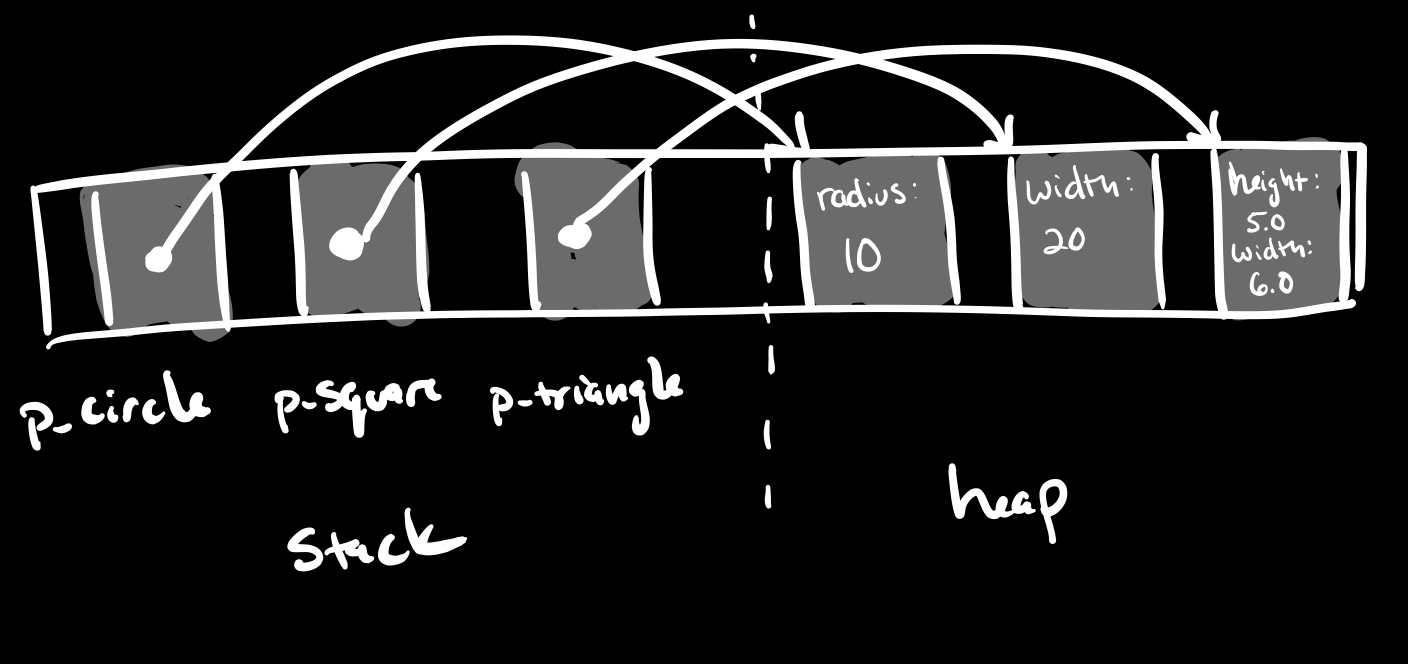 radius:
10
width:
20
height:
5.0
width:
6.0
p_circle
p-square
p-triangle
Stack
heap